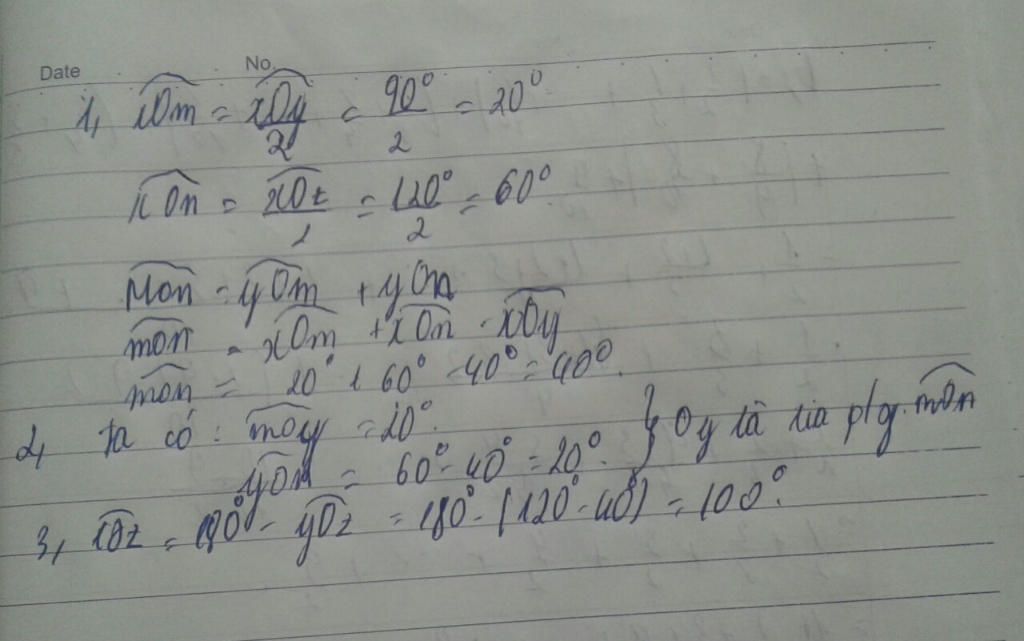 Date No.
1, xOm = xOy/2 = 90°/2 = 20°
xOn = xOz/2 = 120°/2 = 60°
Mon = yOm + yOn
mon = xOm + xOn - xOy
mon = 20° + 60° - 40° = 40°.
2, ta có : mOy = 20°. } Oy là tia p/g. mOn
yOn = 60° - 40° = 20°.
3, = 180° - yOz = 180° - (120° - 40) = 100°.